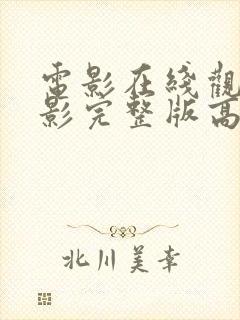 電影在綫觀
影完整版高
北川美幸